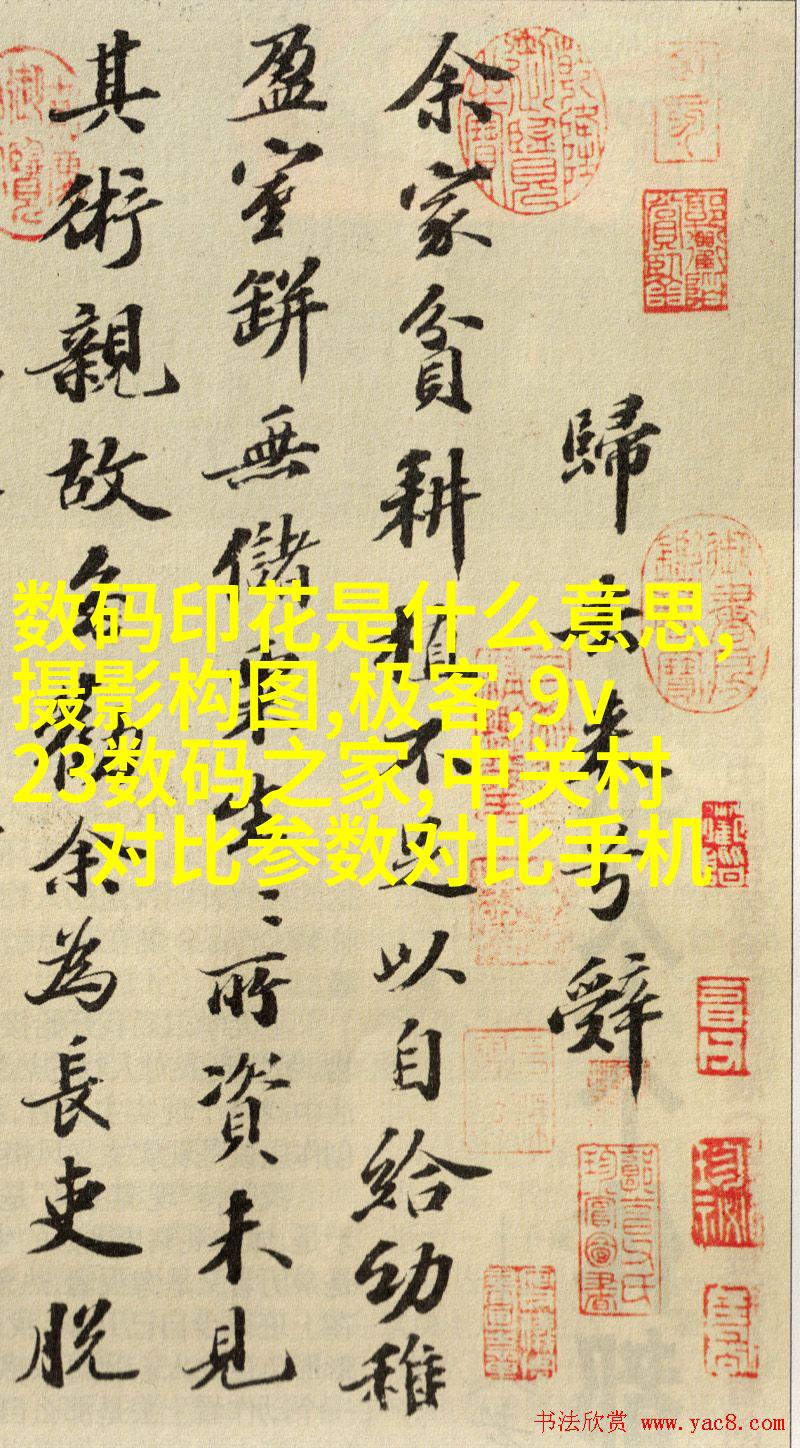 歸去来兮辤
余家貧耕植不足以自給幼稚
盈室缾無儲粟生〻所資未見
其術親故多勸余為長吏脱
数码印花是什么意思,
摄影构图,极客,9v
23数码之家,中关村
对比参数对比手机
书法欣赏 www.yac8.com